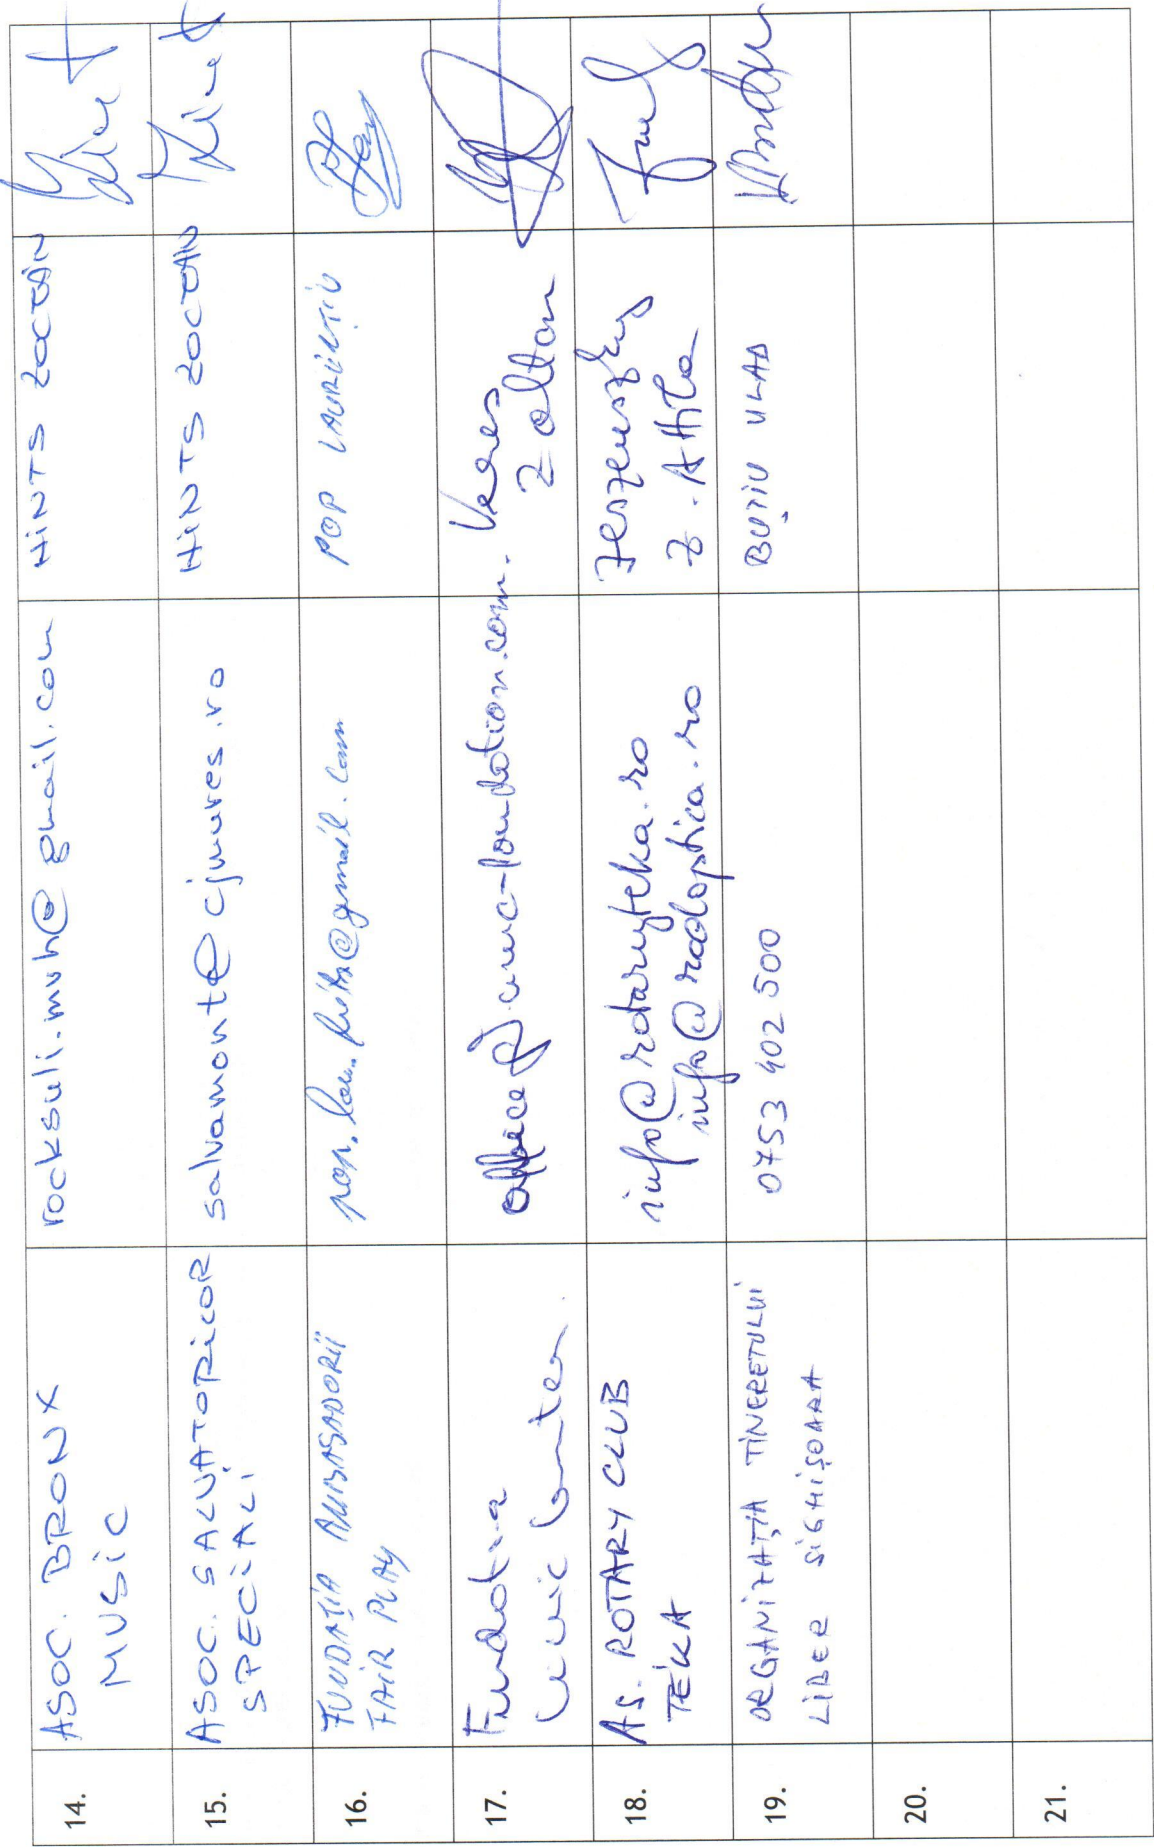 14.
ASOC. BRONX
MUSIC
rocksuli.mvh@gmail.com
HINTS ZOLTÁN
15.
ASOC. SALVATORILOR
SPECIALI
salvamont@cjmures.ro
HINTS ZOLTÁN
16.
FUNDAȚIA AMBASADORII
FAIR PLAY
@gmail.com
POP LAURENȚIU
17.
Fundatia
Civic Center
Veres
Zoltan
18.
AS. ROTARY CLUB
TÉKA
info@rotaryteka.ro
info@rodoptica.ro
Jeszenszky
Z. Attila
19.
ORGANIZAȚIA TINERETULUI
LIBER SIGHIȘOARA
0753 402 500
BUȚIU VLAD
20.
21.